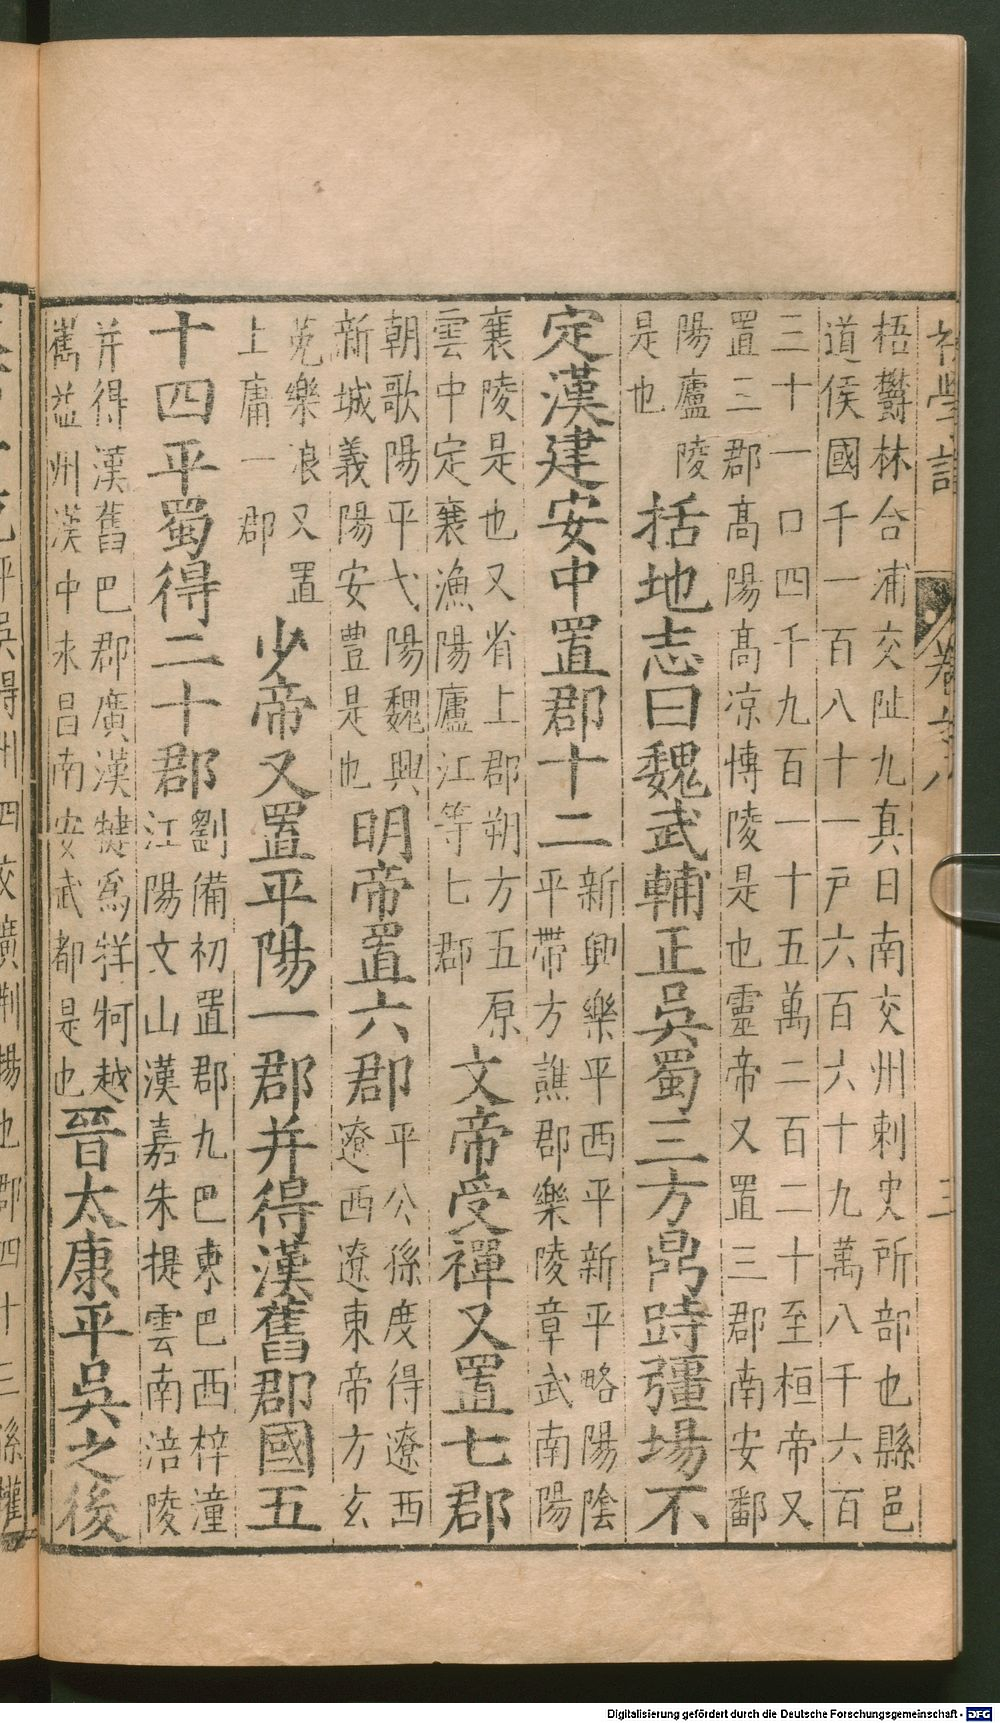 梧欝林合浦交阯九真日南交州刺史所部也縣邑
道侯國千一百八十一戸六百六十九萬八千六百
三十一口四千九百一十五萬二百二十至桓帝又
置三郡髙陽髙凉博陵是也靈帝又置三郡南安鄱
陽廬陵
是也
括地志曰魏武輔正吳蜀三方鼎跱彊場不
定漢建安中置郡十二
新興樂平西平新平略陽隂
平帶方譙郡樂陵章武南陽
襄陵是也又省上郡朔方五原
雲中定襄漁陽廬江等七郡
文帝受禪又置七郡
朝歌陽平弋陽魏興
新城義陽安豊是也
明帝置六郡
平公孫度得遼西
遼西遼東帝方玄
菟樂浪又置
上庸一郡
少帝又置平陽一郡并得漢舊郡國五
十四平蜀得二十郡
劉備初置郡九巴東巴西梓潼
江陽文山漢嘉朱提雲南涪陵
并得漢舊巴郡廣漢犍為牂牁越
嶲益州漢中永昌南安武都是也
晉太康平吳之後
卷之八
三
Digitalisierung gefördert durch die Deutsche Forschungsgemeinschaft - DFG